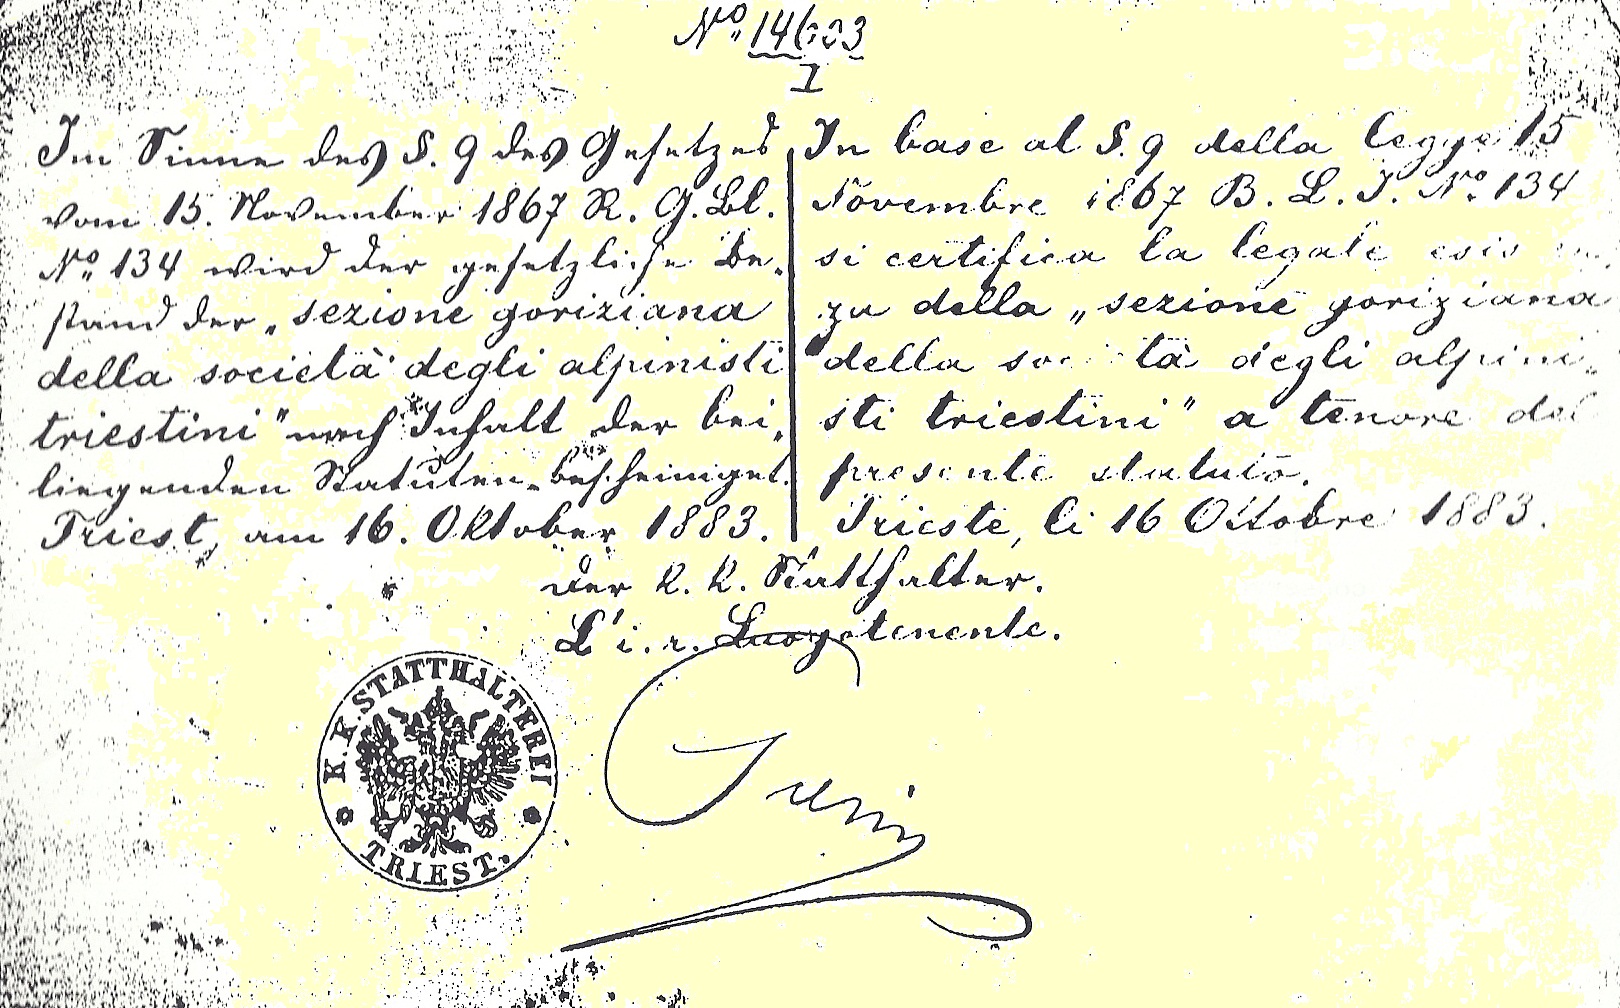 Nº 14603
I
Im Sinne des §. 9 des Gesetzes
vom 15. November 1867 R. G. Bl.
Nº 134 wird der gesetzliche Be-
stand der „sezione goriziana
della società degli alpinisti
triestini" nach Inhalt der bei-
liegenden Statuten bescheiniget.
Triest, am 16. Oktober 1883.
In base al §. 9 della legge 15
Novembre 1867 B. L. I. Nº 134
si certifica la legale esis
za della „sezione goriziana
della società degli alpini-
sti triestini" a tenore del
presente statuto.
Trieste, li 16 Ottobre 1883.
Der k. k. Statthalter.
L'i. r. Luogotenente.
K. K. STATTHALTEREI
TRIEST.